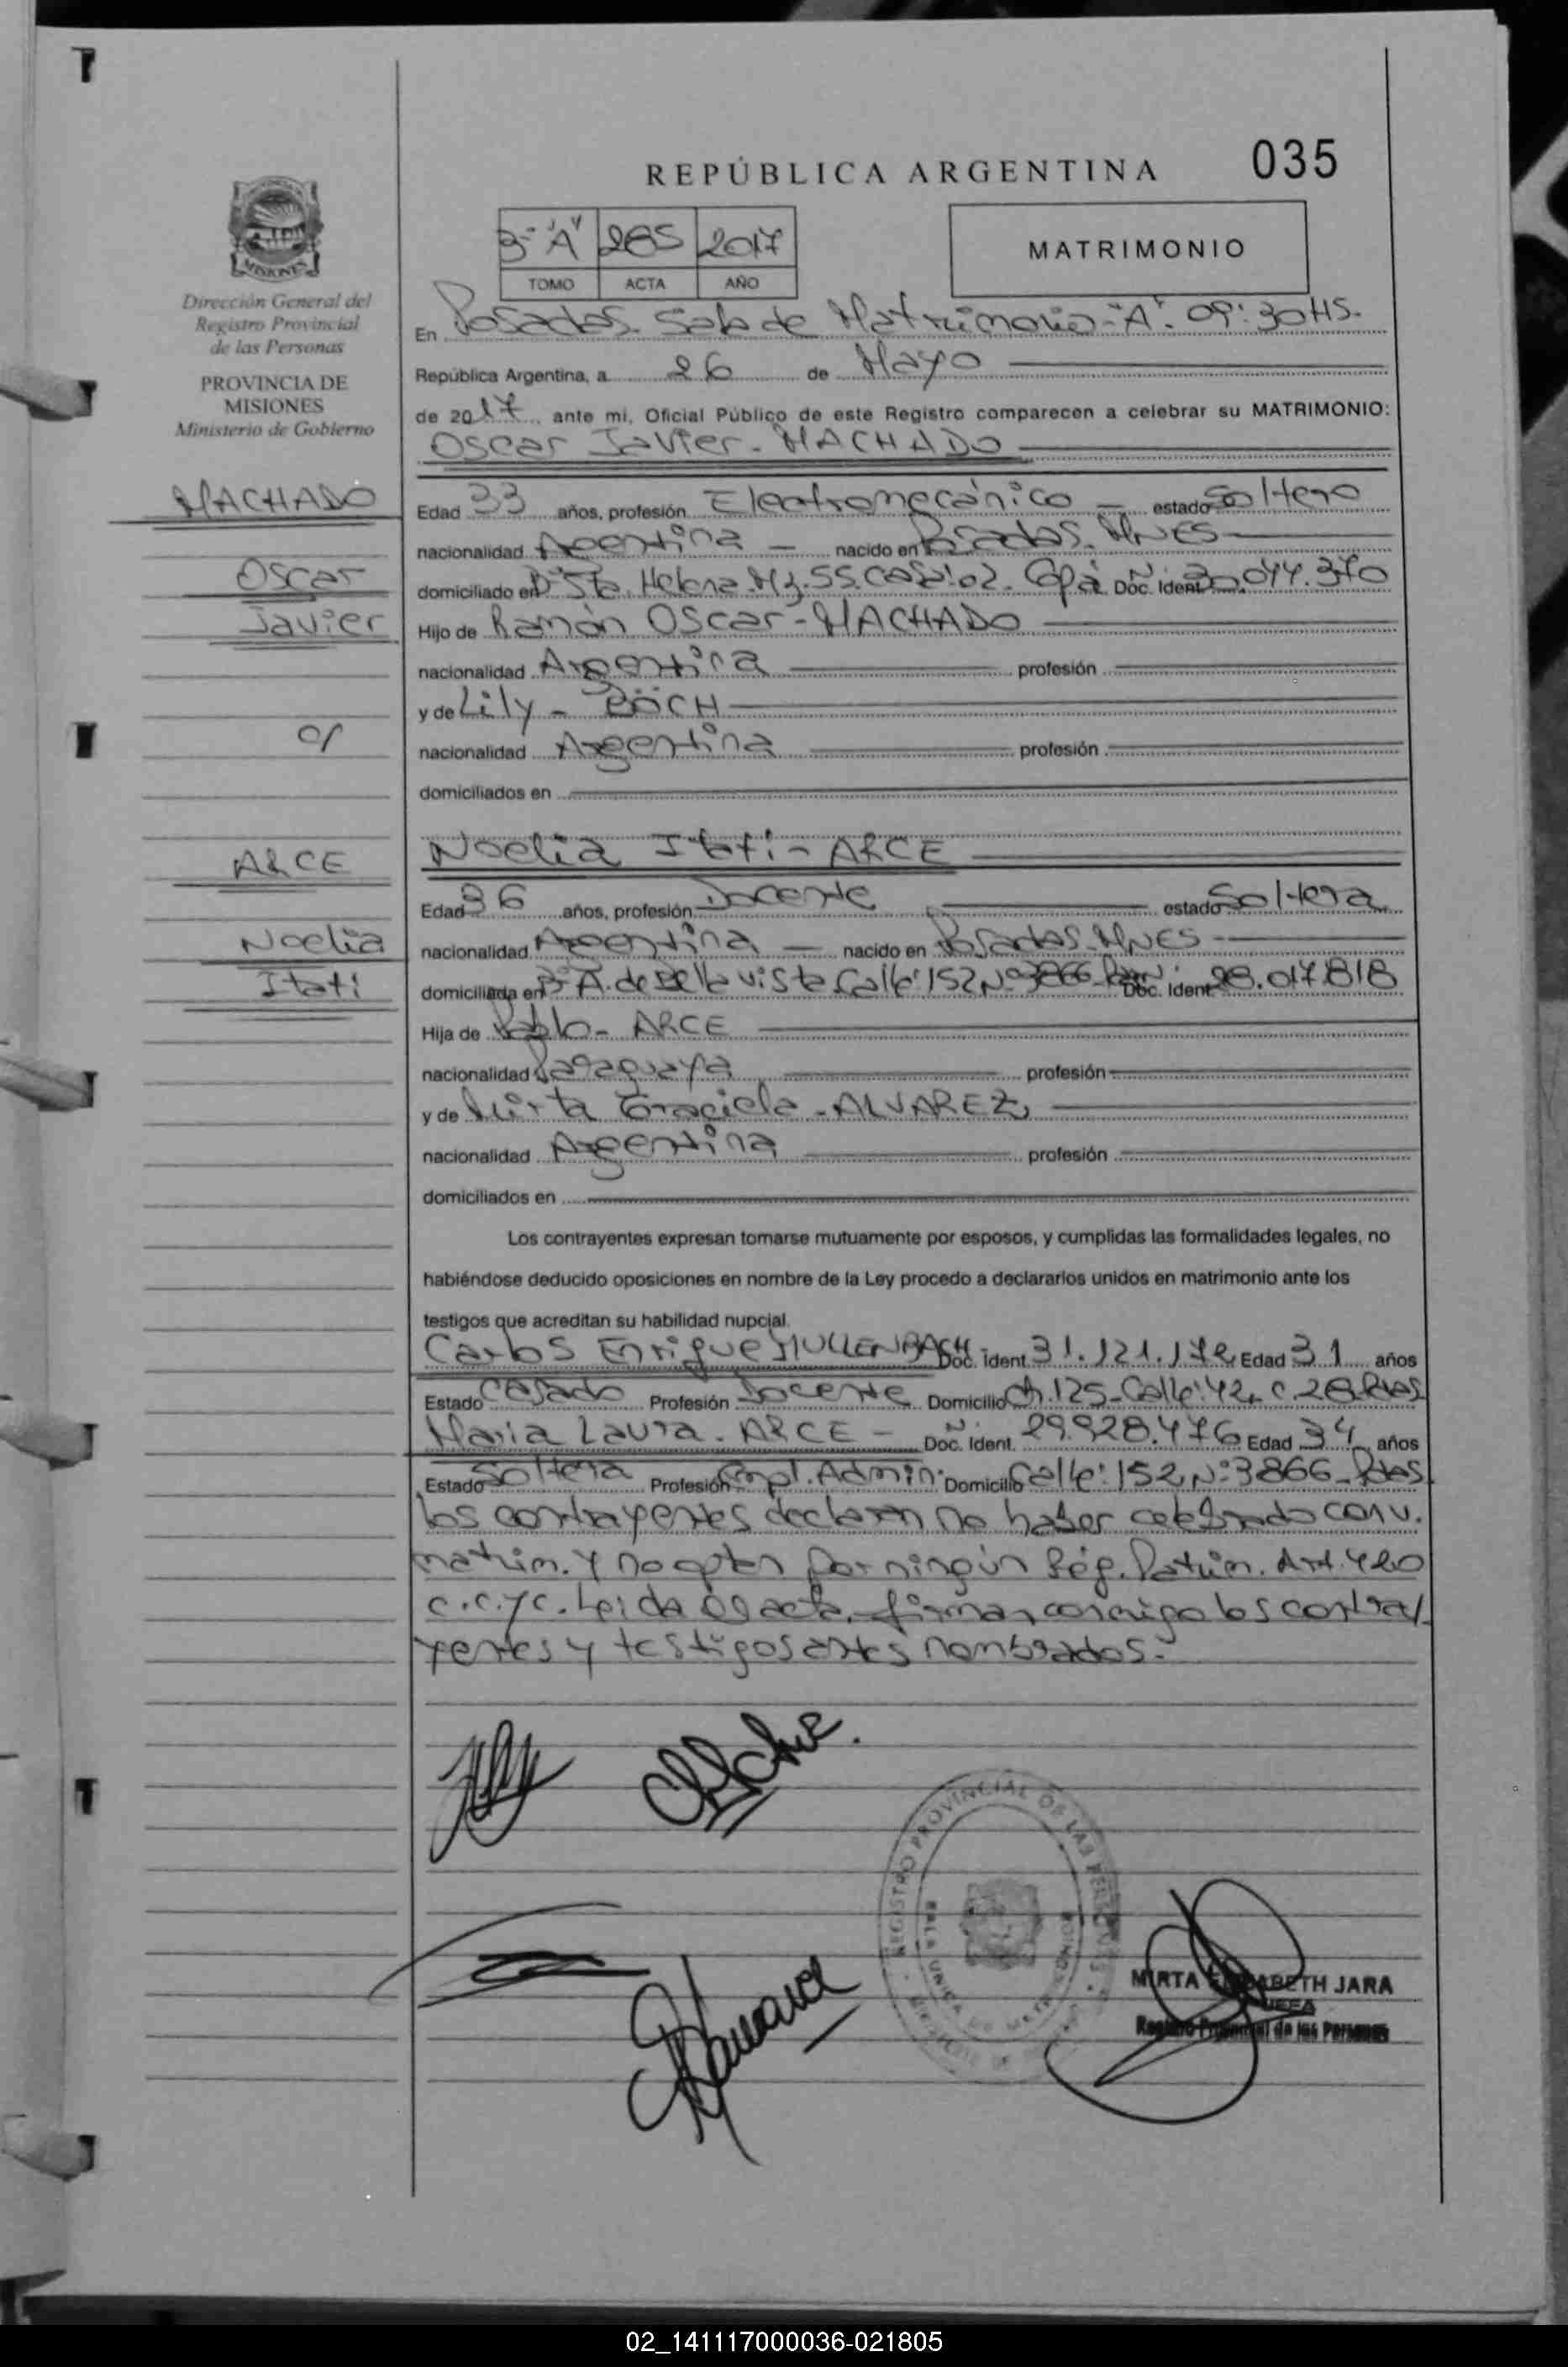 035
REPÚBLICA ARGENTINA
3º "A" 285 2017
TOMO ACTA AÑO
MATRIMONIO
MISIONES
Dirección General del
Registro Provincial
de las Personas
PROVINCIA DE
MISIONES
Ministerio de Gobierno
En Posadas. Sala de Matrimonio-"A". 09:30HS.
República Argentina, a 26 de Mayo
de 2017 ante mi, Oficial Público de este Registro comparecen a celebrar su MATRIMONIO:
Oscar Javier - MACHADO
MACHADO
Oscar
Javier
c/
ARCE
Noelia
Itatí
Edad 33 años, profesión Electromecánico estado Soltero
nacionalidad Argentina nacido en Posadas. MNES
domiciliado en Bº Sta. Helena. Mz. 55. Casa: 02. Gpá Doc. Ident. 30.044.370
Hijo de Ramón Oscar - MACHADO
nacionalidad Argentina profesión
y de Lily - BÖCH
nacionalidad Argentina profesión
domiciliados en
Noelia Itatí - ARCE
Edad 36 años, profesión Docente estado Soltera
nacionalidad Argentina nacido en Posadas. MNES
domiciliada en Bº A. de Bella vista Calle: 152 Nº 3866 Doc. Ident. 28.017.818
Hija de Pablo - ARCE
nacionalidad Paraguaya profesión
y de Mirta Graciela - ALVAREZ
nacionalidad Argentina profesión
domiciliados en
Los contrayentes expresan tomarse mutuamente por esposos, y cumplidas las formalidades legales, no
habiéndose deducido oposiciones en nombre de la Ley procedo a declararlos unidos en matrimonio ante los
testigos que acreditan su habilidad nupcial.
Carlos Enrique MULLENBACH Doc. Ident. 31.121.172 Edad 31 años
Estado Casado Profesión Docente Domicilio Ch. 125 - Calle: 42, C. 28. Pdas
Maria Laura - ARCE - Doc. Ident. 29.928.476 Edad 34 años
Estado Soltera Profesión Empl. Admin. Domicilio Calle: 152, Nº: 3866 - Pdas
los contrayentes declaran no haber celebrado conv.
matrim. y no optan por ningún Rég. Patrim. Art. 420
C.C.yC. Leida el acta, firman conmigo los contra/
yentes y testigos antes nombrados.-
REGISTRO PROVINCIAL DE LAS PERSONAS
SALA UNICA DE MATRIMONIO
MIRTA ELIZABETH JARA
JEFA
Registro Provincial de las Personas
02_141117000036-021805